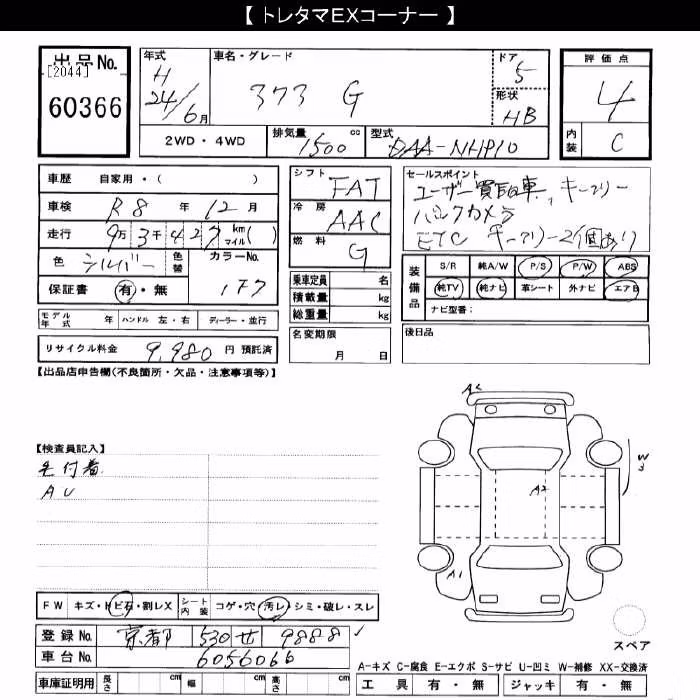 【 トレタマEXコーナー 】
出品No.
[2044]
60366
年式 車名・グレード ドア
H 24/6月 373 G 5
形状 HB
2WD・4WD 排気量 1500 cc 型式 DAA-NHP10
評価点
4
内装 C
車歴 自家用・( )
車検 R8 年 12月
走行 9万3千427 km マイル( )
色 シルバー 色替 カラーNo. 1F7
保証書 有・無
モデル年式 年 ハンドル 左・右 ディーラー・並行
リサイクル料金 9,980 円 預託済
シフト FAT
冷房 AAC
燃料 G
乗車定員 名
積載量 kg
総重量 kg
名変期限
月 日
セールスポイント
ユーザー買取車、キーフリー
バックカメラ
ETC キーフリー2個あり
装備品
S/R 純A/W P/S P/W ABS
純TV 純ナビ 革シート 外ナビ エアB
ナビ型番:
後日品
【出品店申告欄(不良箇所・欠品・注意事項等)】
【検査員記入】
AU
A2
W3
A1
FW キズ・トビ石・割レX シート内装 コゲ・穴・汚レ・シミ・破レ・スレ
登録No. 京都 530 せ 9888
車台No. 6056066
車庫証明用 長さ cm 幅 cm 高さ cm
スペア
A-キズ C-腐食 E-エクボ S-サビ U-凹ミ W-補修 XX-交換済
工具 有・無 ジャッキ 有・無